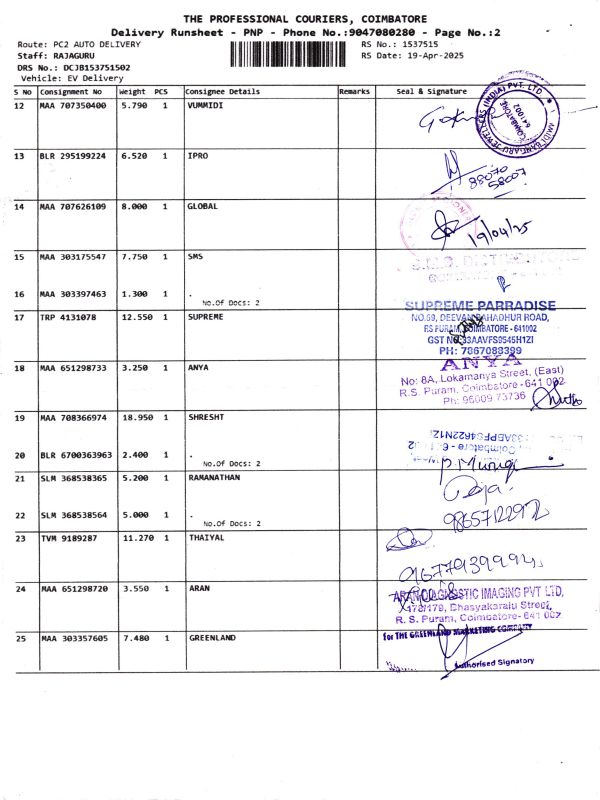 THE PROFESSIONAL COURIERS, COIMBATORE
Delivery Runsheet - PNP - Phone No.:9047080280 - Page No.:2
Route: PC2 AUTO DELIVERY RS No.: 1537515
Staff: RAJAGURU RS Date: 19-Apr-2025
DRS No.: DCJB153751502
Vehicle: EV Delivery
S No Consignment No Weight PCS Consignee Details Remarks Seal & Signature
12 MAA 707350400 5.790 1 VUMMIDI
COIMBATORE 641002
13 BLR 295199224 6.520 1 IPRO
88070
58007
14 MAA 707626109 8.000 1 GLOBAL
19/04/25
15 MAA 303175547 7.750 1 SMS
S.M.S. DISTRIBUTORS
16 MAA 303397463 1.300 1 .
No.Of Docs: 2
17 TRP 4131078 12.550 1 SUPREME
SUPREME PARRADISE
NO.69, DEEVAN BAHADHUR ROAD,
R.S PURAM, COIMBATORE - 641002
GST NO.33AAVFS9545H1ZI
PH: 7867088399
18 MAA 651298733 3.250 1 ANYA
ANYA
No: 8A, Lokamanya Street, (East)
R.S. Puram, Coimbatore-641 002
Ph: 96009 73736
19 MAA 708366974 18.950 1 SHRESHT
20 BLR 6700363963 2.400 1 .
No.Of Docs: 2
21 SLM 368538365 5.200 1 RAMANATHAN
22 SLM 368538564 5.000 1 .
No.Of Docs: 2
23 TVM 9189287 11.270 1 THAIYAL
24 MAA 651298720 3.550 1 ARAN
ARAN DIAGNOSTIC IMAGING PVT LTD,
172/179, Bhasyakaralu Street,
R. S. Puram, Coimbatore- 641 002
25 MAA 303357605 7.480 1 GREENLAND
for THE GREENLAND MARKETING COMPANY
Authorised Signatory